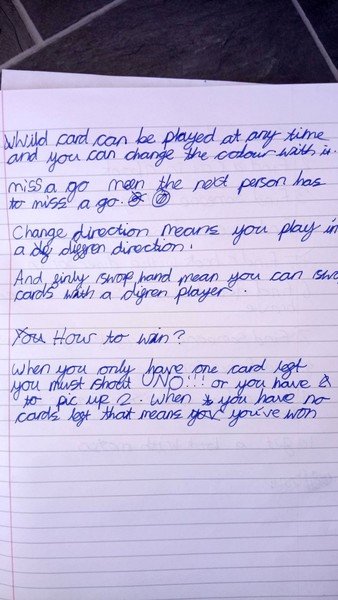 Whild card can be played at any time
and you can change the colour with it.
miss a go meen the next person has
to miss a go.
Change direction means you play in
a digren direction.
And finly swop hand mean you can swo
cards with a digren player.
You How to win?
When you only have one card legt
you must shout UNO!!! or you have
to pic up 2. When you have no
cards legt that means you've won